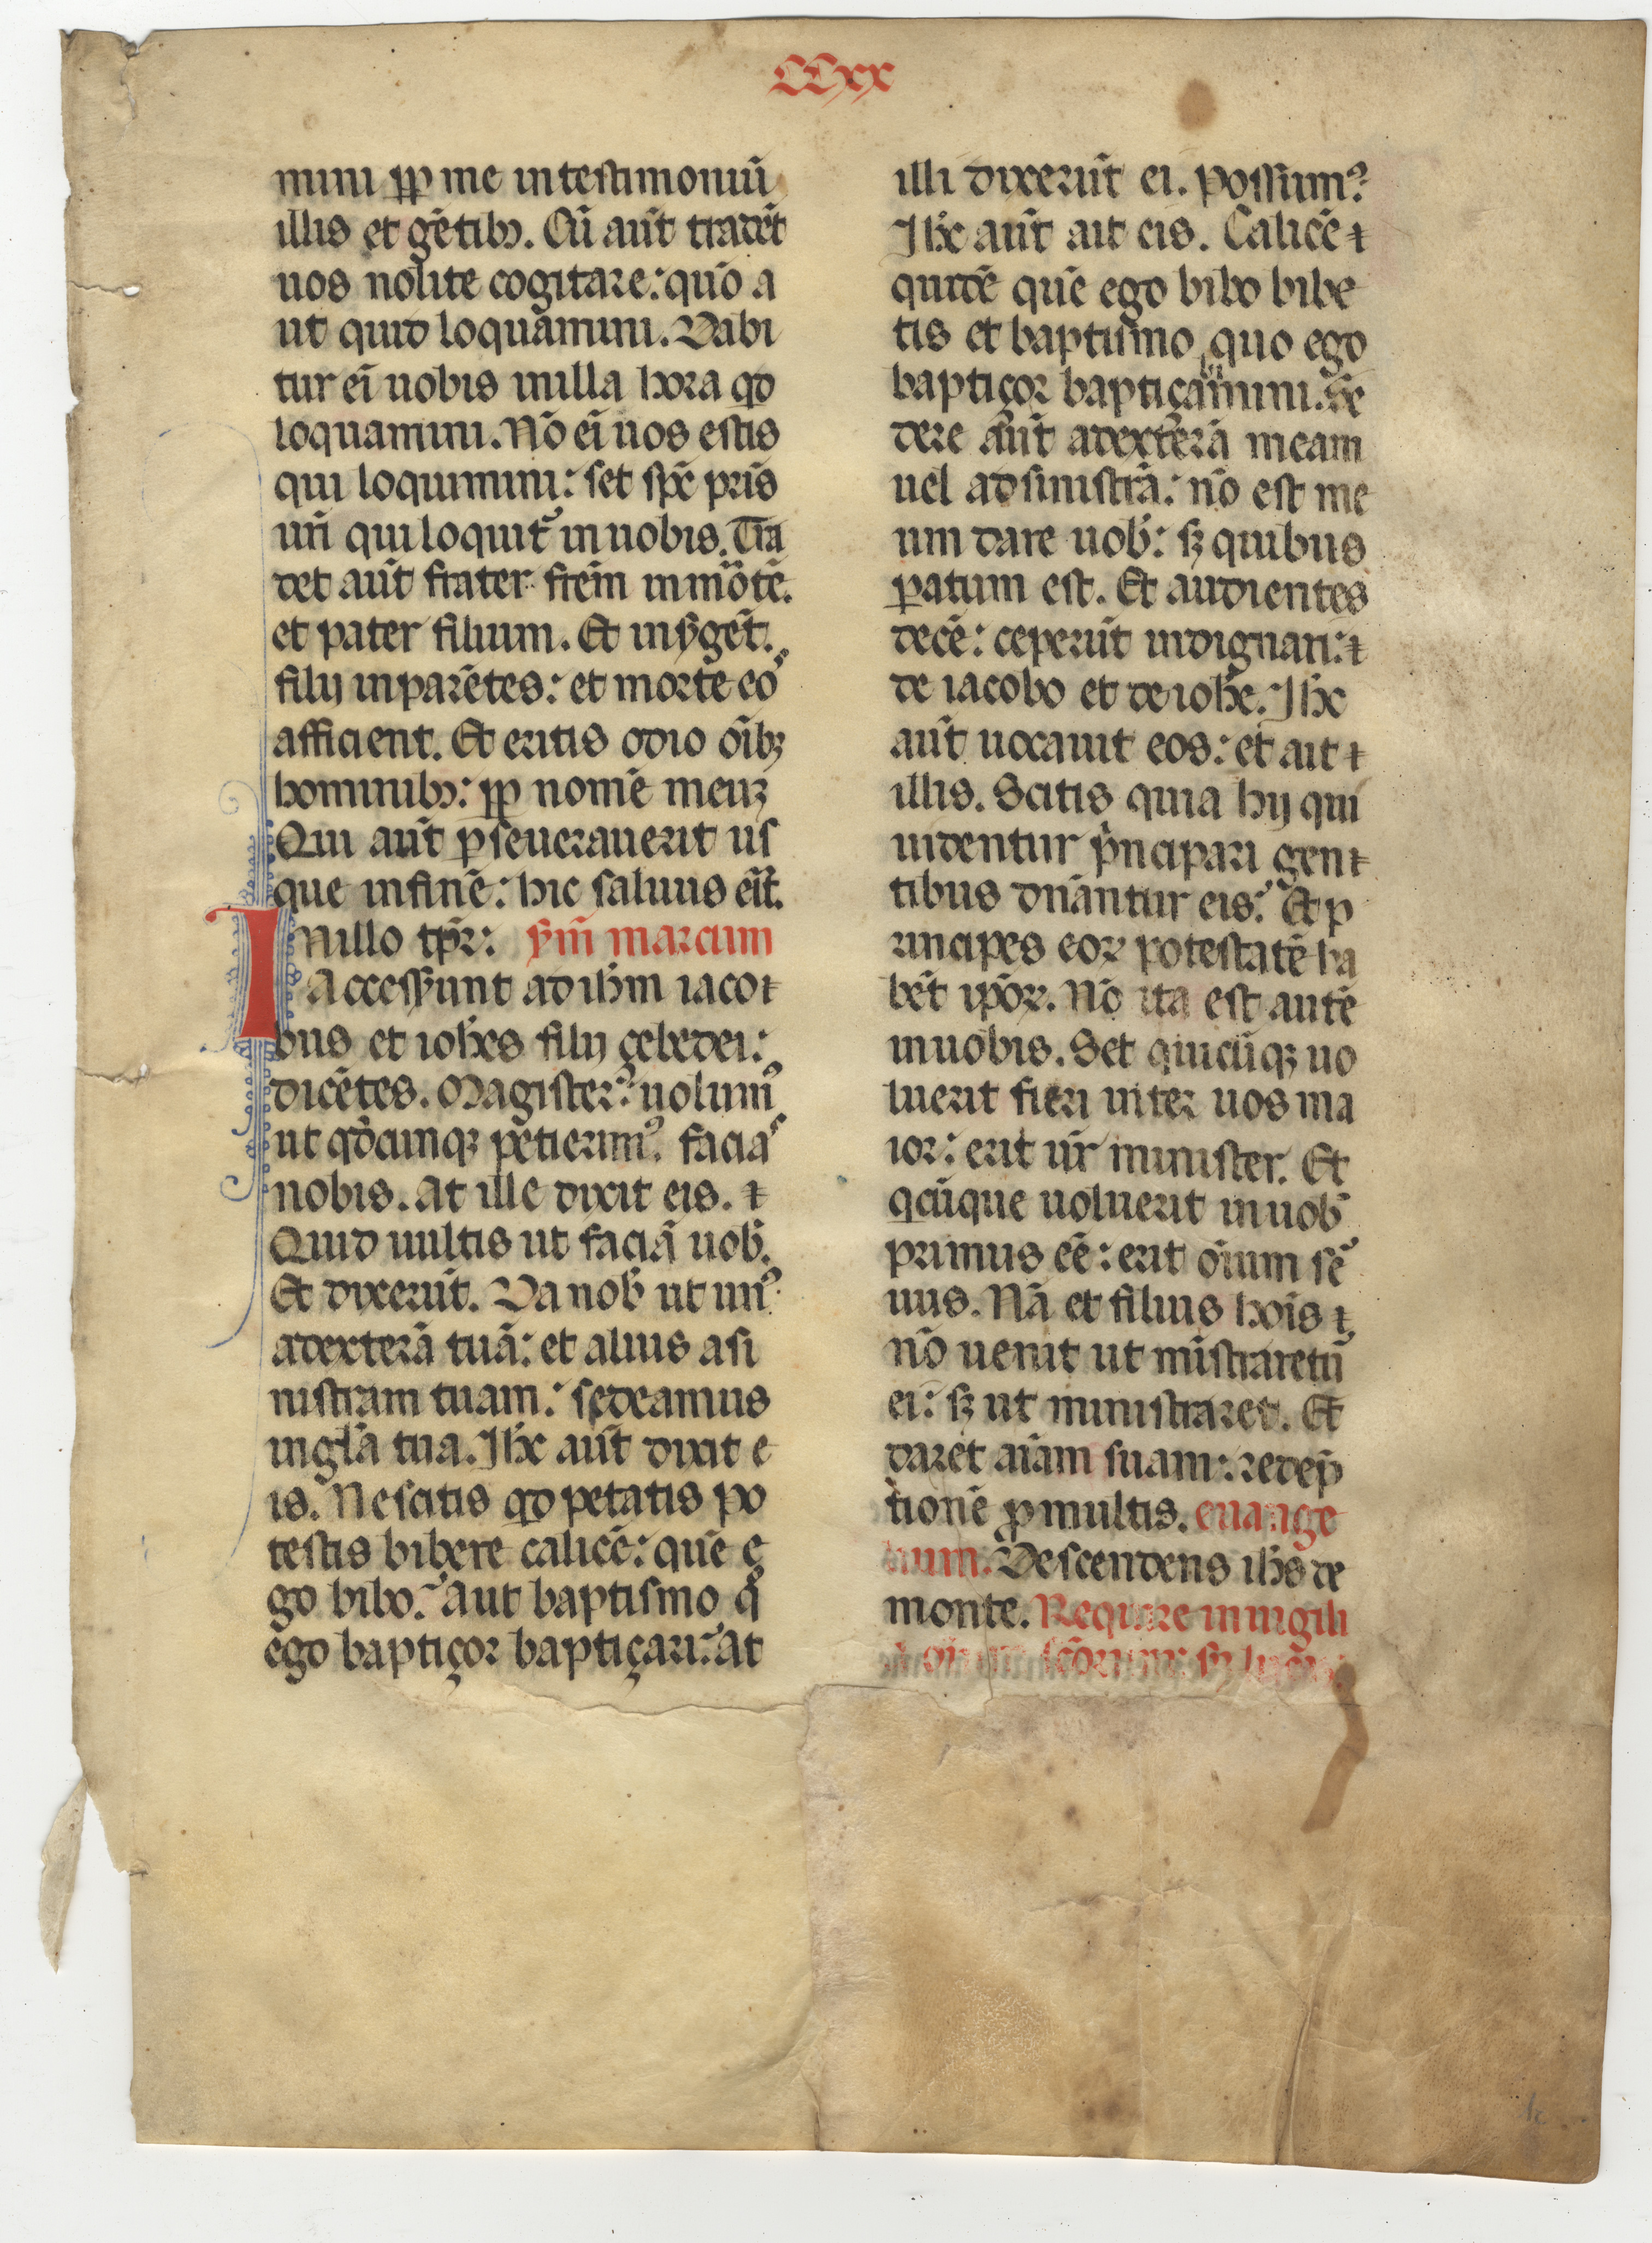 CCxx
mini ꝓp me in testimoniū
illis et gētibꝫ. Cū aūt tradēt
uos nolite cogitare: quō a
ut quid loquamini. Dabi
tur ei̅ uobis in illa hora qd̅
loquamini. Nō ei̅ uos estis
qui loquimini: set sp̅c pr̅is
ur̅i qui loquit᷑ in uobis. Tra
det aūt frater fr̅em in mo᷑tē.
et pater filium. Et insꝰgēt
filij in parētes: et mortē eoꝰ
afficient. Et eritis odio oīb;
hominibꝫ: ꝓp nomē meuꝫ
Qui aūt ꝑseuerauerit us
que in finē: hic saluus eīt.
In illo tp̅r: s̅m marcum
Accesserunt ad ih̅m iaco
bus et ioh̅es filij çebedei:
dicētes. Magister: uolumꝰ
ut qd̅cumqꝫ petierimꝰ faciaˢ
nobis. At ille dixit eis.
Quid uultis ut faciā uob̅.
Et dixerūt. Da nob̅ ut unꝰ
adexterā tuā: et alius asi
nistram tuam: sedeamus
in gl̅a tua. Ih̅c aūt dixit e
is. Nescitis qd̅ petatis po
testis bibere calicē: quē e
go bibo. Aut baptismo qͦ
ego baptiçor baptiçari: At
illi dixerūt ei. possumꝰ
Ih̅c aūt ait eis. Calicē
quidē quē ego bibo bibe
tis et baptismo quo ego
baptiçor baptiçamini. Se
dere aūt adexterā meam
uel ad sinistrā: nō est me
um dare uob̅: sꝫ quibus
ꝑatum est. Et audientes
decē: ceperūt indignari:
de iacobo et de ioh̅e. Ih̅c
aūt uocauit eos: et ait
illis. Scitis quia hij qui
uidentur pͥncipari gen
tibus dn̅antur eis: Et p
rincipes eoꝝ potestatē ha
bēt ip̅oꝝ. Nō ita est autē
in uobis. Set quicūqꝫ uo
luerit fieri inter uos ma
ior: erit ur̅ minister. Et
qͥcūque uoluerit in uob̅
primus ee̅: erit oīum se᷑
uus. Nā et filius hoīs
nō uenit ut mīstraretu᷑
ei: sꝫ ut ministraret. Et
daret aīam suam: redēp
tionē ꝓ multis. euange
lium. Descendens ih̅s de
monte. Require in uigili